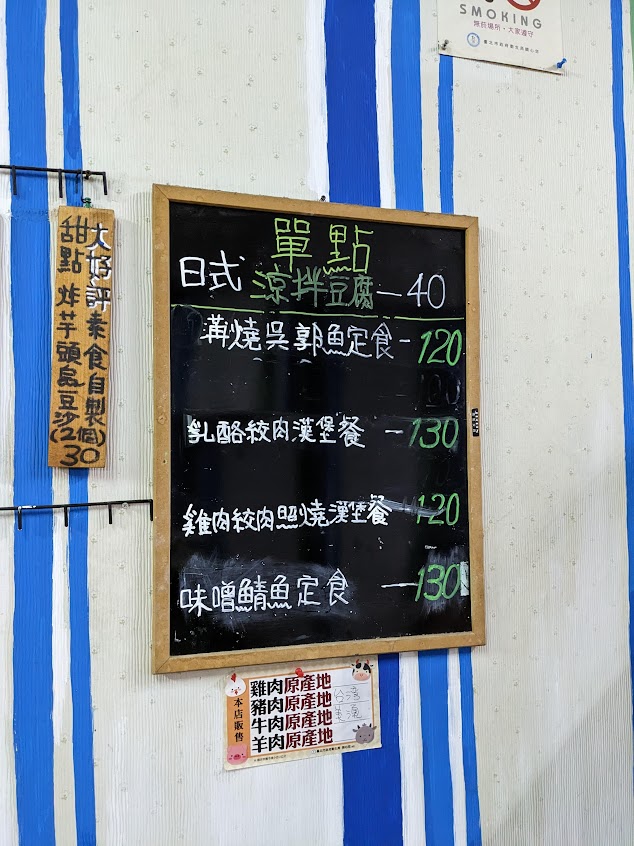 SMOKING
無菸場所·大家遵守
單點
日式 涼拌豆腐 — 40
蒲燒吳郭魚定食 - 120
乳酪絞肉漢堡餐 - 130
雞肉絞肉照燒漢堡餐 120
味噌鯖魚定食 — 130
大好評素食自製
甜點 炸芋頭烏豆沙(2個)30
本店販售
雞肉原產地
豬肉原產地 台灣
牛肉原產地 美濃
羊肉原產地